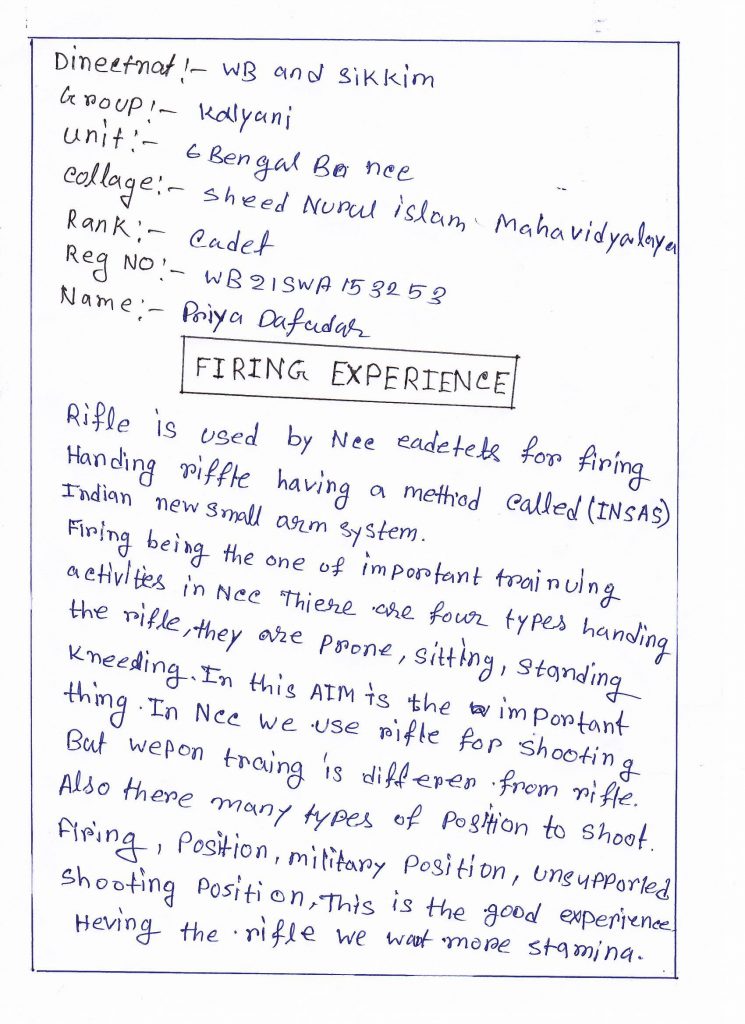 Directnat:- WB and Sikkim
Group:- Kalyani
Unit:- 6 Bengal Bn ncc
Collage:- Sheed Nurul islam Mahavidyalaya
Rank:- Cadet
Reg NO:- WB21SWA153253
Name:- Priya Dafadar
FIRING EXPERIENCE
Rifle is used by Ncc cadetets for firing
Handing riffle having a method called (INSAS)
Indian new small arm system.
Firing being the one of important trainuing
activities in Ncc Thiere are four types handing
the rifle, they are prone, sitting, standing
kneeding. In this AIM is the important
thing. In Ncc we use rifle for shooting
But wepon traing is differen from rifle.
Also there many types of position to shoot.
Firing, position, military position, unsupported
shooting position, This is the good experience
Heving the rifle we want more stamina.